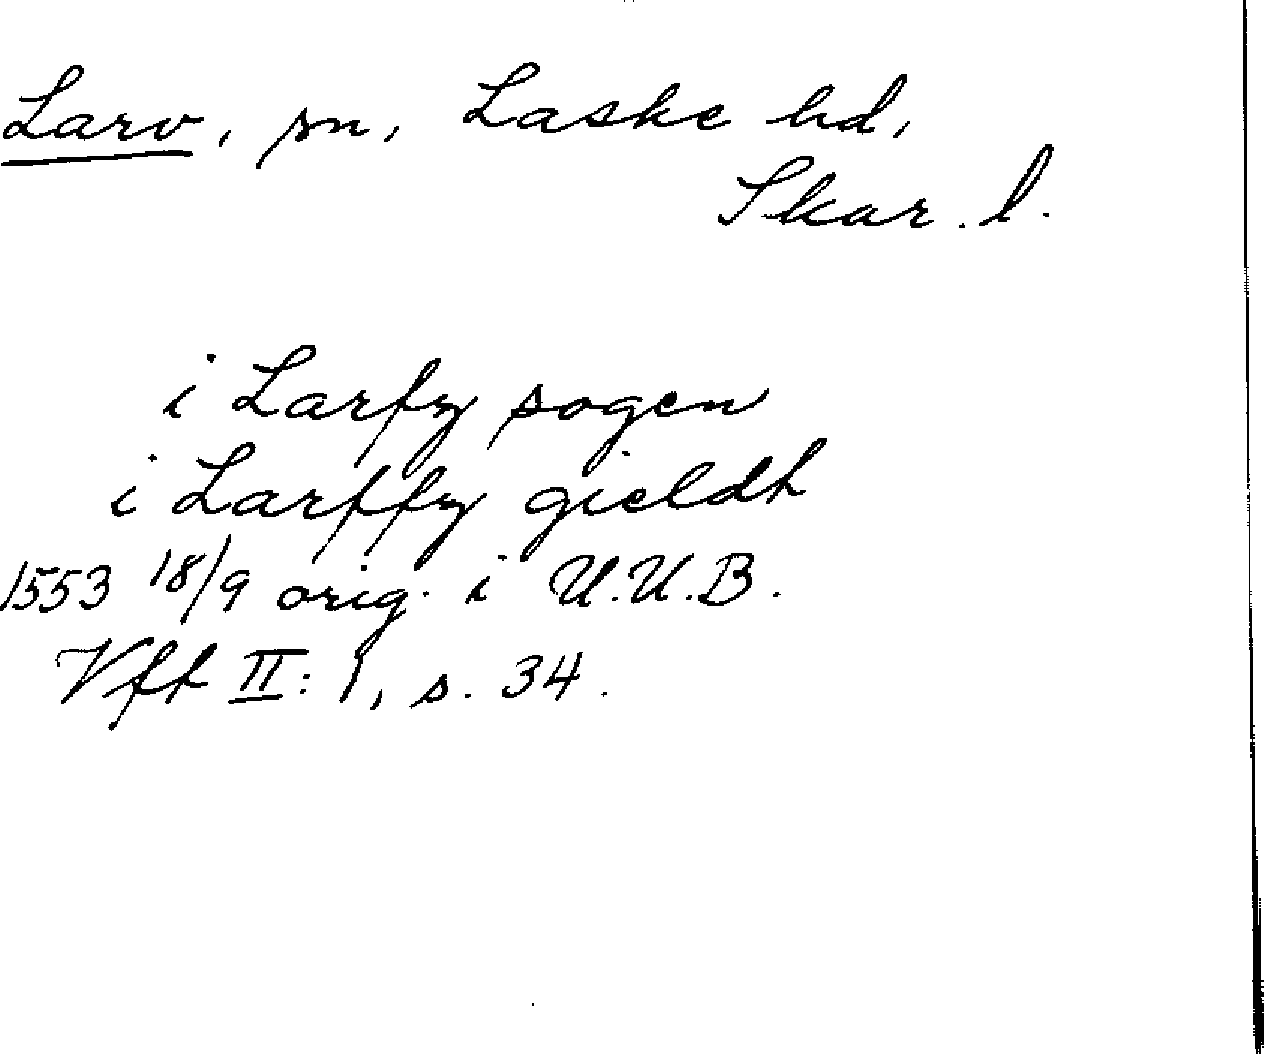 Larv, sn, Laske hd,
Skar. l.
i Larfy sogen
i Larffy gieldh
1553 18/9 orig. i U.U.B.
Vfft II: 1, s. 34.